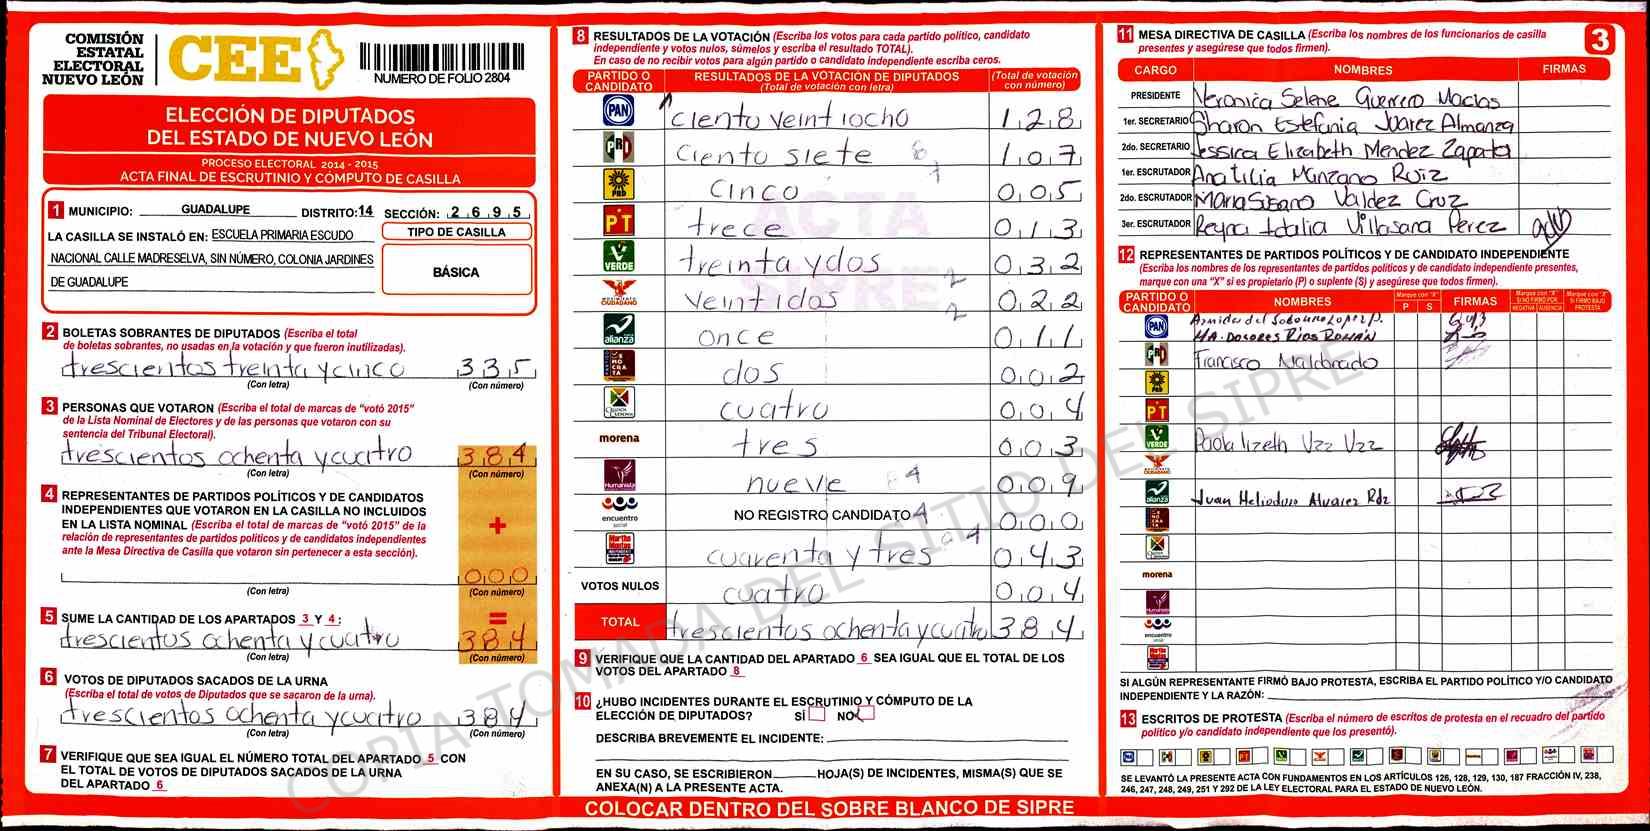 COMISIÓN
ESTATAL
ELECTORAL
NUEVO LEÓN
CEE
NUMERO DE FOLIO 2804
ELECCIÓN DE DIPUTADOS
DEL ESTADO DE NUEVO LEÓN
PROCESO ELECTORAL 2014 - 2015
ACTA FINAL DE ESCRUTINIO Y CÓMPUTO DE CASILLA
1 MUNICIPIO: GUADALUPE DISTRITO:14 SECCIÓN: 2 6 9 5
LA CASILLA SE INSTALÓ EN: ESCUELA PRIMARIA ESCUDO
NACIONAL CALLE MADRESELVA, SIN NÚMERO, COLONIA JARDINES
DE GUADALUPE
TIPO DE CASILLA
BÁSICA
2 BOLETAS SOBRANTES DE DIPUTADOS (Escriba el total
de boletas sobrantes, no usadas en la votación y que fueron inutilizadas).
trescientos treinta y cinco 3 3 5
(Con letra) (Con número)
3 PERSONAS QUE VOTARON (Escriba el total de marcas de "votó 2015"
de la Lista Nominal de Electores y de las personas que votaron con su
sentencia del Tribunal Electoral).
trescientos ochenta y cuatro 3 8 4
(Con letra) (Con número)
4 REPRESENTANTES DE PARTIDOS POLÍTICOS Y DE CANDIDATOS
INDEPENDIENTES QUE VOTARON EN LA CASILLA NO INCLUIDOS
EN LA LISTA NOMINAL (Escriba el total de marcas de "votó 2015" de la
relación de representantes de partidos políticos y de candidatos independientes
ante la Mesa Directiva de Casilla que votaron sin pertenecer a esta sección).
+
0 0 0
(Con letra) (Con número)
5 SUME LA CANTIDAD DE LOS APARTADOS 3 Y 4: =
trescientos ochenta y cuatro 3 8 4
(Con letra) (Con número)
6 VOTOS DE DIPUTADOS SACADOS DE LA URNA
(Escriba el total de votos de Diputados que se sacaron de la urna).
trescientos ochenta y cuatro 3 8 4
(Con letra) (Con número)
7 VERIFIQUE QUE SEA IGUAL EL NÚMERO TOTAL DEL APARTADO 5 CON
EL TOTAL DE VOTOS DE DIPUTADOS SACADOS DE LA URNA
DEL APARTADO 6
8 RESULTADOS DE LA VOTACIÓN (Escriba los votos para cada partido político, candidato
independiente y votos nulos, súmelos y escriba el resultado TOTAL).
En caso de no recibir votos para algún partido o candidato independiente escriba ceros.
PARTIDO O CANDIDATO RESULTADOS DE LA VOTACIÓN DE DIPUTADOS (Total de votación con letra) (Total de votación con número)
PAN ciento veintiocho 1 2 8
PRI ciento siete 1 0 7
PRD cinco 0 0 5
PT trece 0 1 3
VERDE treinta y dos 0 3 2
MOVIMIENTO CIUDADANO veintidos 0 2 2
alianza once 0 1 1
DEMOCRATA dos 0 0 2
cuatro 0 0 4
morena tres 0 0 3
Humanista nueve 0 0 9
encuentro social NO REGISTRO CANDIDATO 0 0 0
Martha cuarenta y tres 0 4 3
VOTOS NULOS cuatro 0 0 4
TOTAL trescientos ochenta y cuatro 3 8 4
ACTA
SIPRE
9 VERIFIQUE QUE LA CANTIDAD DEL APARTADO 6 SEA IGUAL QUE EL TOTAL DE LOS
VOTOS DEL APARTADO 8
10 ¿HUBO INCIDENTES DURANTE EL ESCRUTINIO Y CÓMPUTO DE LA
ELECCIÓN DE DIPUTADOS? SÍ NO
DESCRIBA BREVEMENTE EL INCIDENTE:
EN SU CASO, SE ESCRIBIERON HOJA(S) DE INCIDENTES, MISMA(S) QUE SE
ANEXA(N) A LA PRESENTE ACTA.
COLOCAR DENTRO DEL SOBRE BLANCO DE SIPRE
11 MESA DIRECTIVA DE CASILLA (Escriba los nombres de los funcionarios de casilla
presentes y asegúrese que todos firmen).
3
CARGO NOMBRES FIRMAS
PRESIDENTE Veronica Selene Guerrero Macias
1er. SECRETARIO Sharon Estefania Juarez Almanza
2do. SECRETARIO Jessica Elizabeth Mendez Zapata
1er. ESCRUTADOR Ana tilia Manzano Ruiz
2do. ESCRUTADOR Maria Susano Valdez Cruz
3er. ESCRUTADOR Reyna Idalia Villasana Perez
12 REPRESENTANTES DE PARTIDOS POLÍTICOS Y DE CANDIDATO INDEPENDIENTE
(Escriba los nombres de los representantes de partidos políticos y de candidato independiente presentes,
marque con una "X" si es propietario (P) o suplente (S) y asegúrese que todos firmen).
PARTIDO O CANDIDATO NOMBRES Marque con "X" P S FIRMAS Marque con "X" SI NO FIRMÓ POR: NEGATIVA AUSENCIA Marque con "X" SI FIRMÓ BAJO PROTESTA
PAN Armida del Socorro Lopez P.
MA. DOLORES RIOS ROMÁN
PRI Francisco Maldonado
PRD
PT
VERDE Paola lizeth Vzz Vzz
CIUDADANO
alianza Juan Heliodoro Alvarez Rdz
morena
Humanista
encuentro
SI ALGÚN REPRESENTANTE FIRMÓ BAJO PROTESTA, ESCRIBA EL PARTIDO POLÍTICO Y/O CANDIDATO
INDEPENDIENTE Y LA RAZÓN:
13 ESCRITOS DE PROTESTA (Escriba el número de escritos de protesta en el recuadro del partido
político y/o candidato independiente que los presentó).
SE LEVANTÓ LA PRESENTE ACTA CON FUNDAMENTOS EN LOS ARTÍCULOS 126, 128, 129, 130, 187 FRACCIÓN IV, 238,
246, 247, 248, 249, 251 Y 292 DE LA LEY ELECTORAL PARA EL ESTADO DE NUEVO LEÓN.
COPIA TOMADA DEL SITIO DEL SIPRE